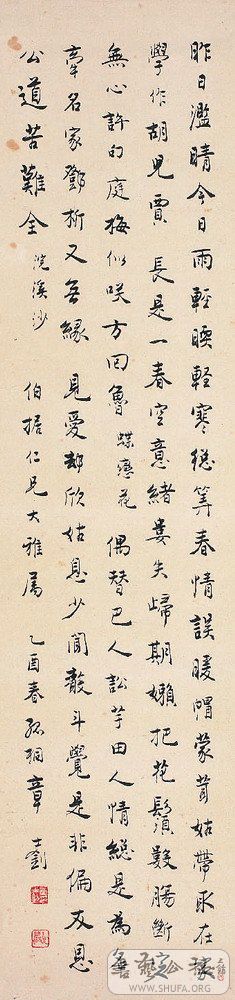 昨日濫晴今日雨輕暖輕寒總算春情誤暖帽蒙茸姑帶取在家
學作胡兒賈 長是一春空意緒屢失歸期嬾把花鬚數腸斷
無心許功庭梅似咲方回魯 蝶戀花 偶替巴人訟芋田人情總是為
牽名家鄧析又無緣 見愛卻欣姑息少聞敲斗覺是非偏友恩
公道苦難全 浣溪沙 伯据仁兄大雅屬 乙酉春孤桐章士釗
WWW.SHUFA.ORG